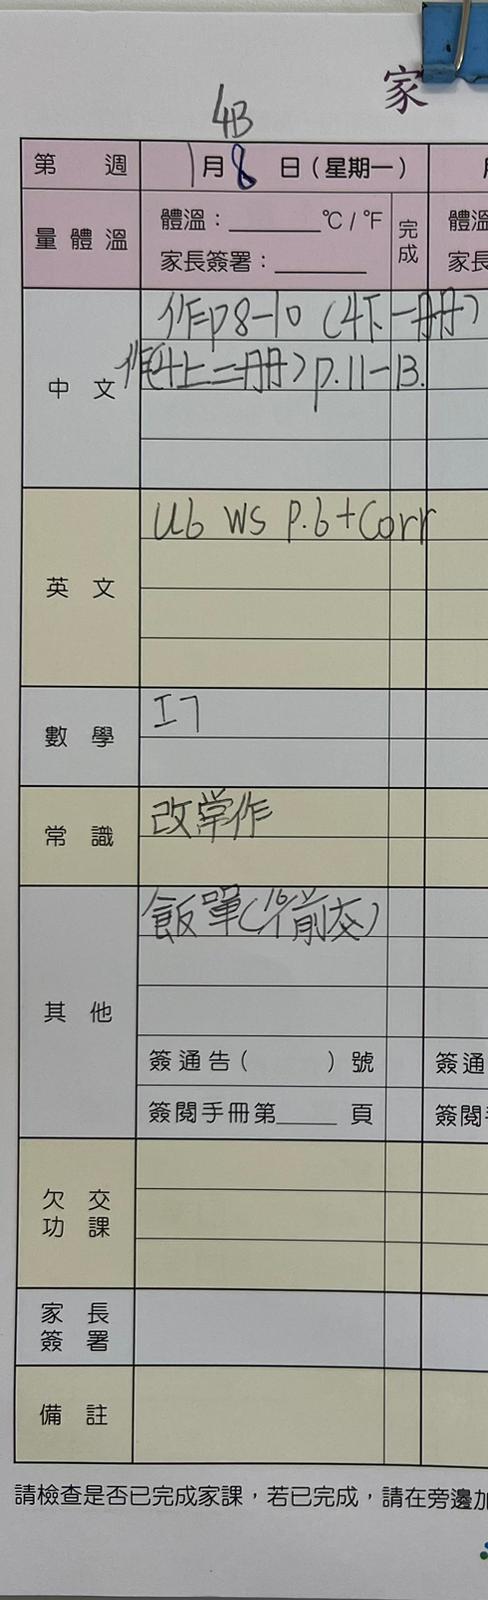 家
4B
第 週 1月8日(星期一)
量體溫 體溫：______°C/°F 完成 體溫
家長簽署：______ 家長
中文 作p8-10 (4下一冊)
作(4上二冊) p.11-13.
英文 U6 WS P.6+Corr
數學 工7
常識 改常作
其他 飯單(前交)
簽通告( )號 簽通
簽閱手冊第____頁 簽閱
欠交功課
家長簽署
備註
請檢查是否已完成家課，若已完成，請在旁邊加